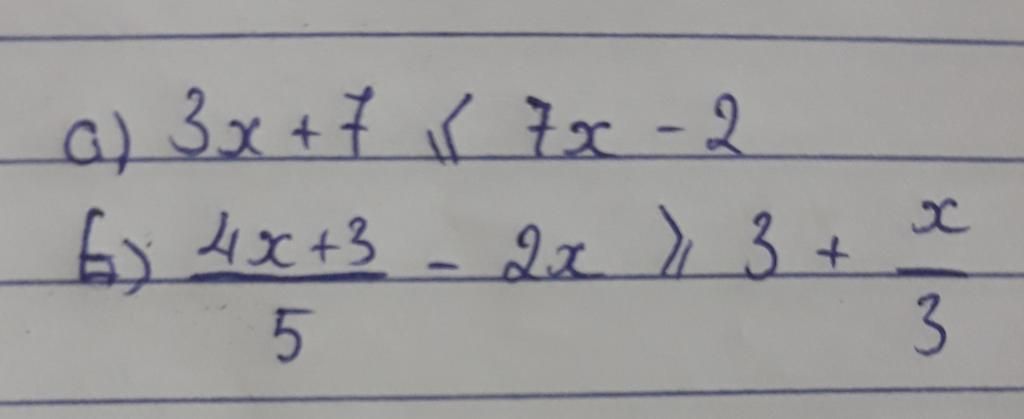 а) 3x + 7 ⩽ 7x - 2
б) \frac{4x+3}{5} - 2x ⩾ 3 + \frac{x}{3}